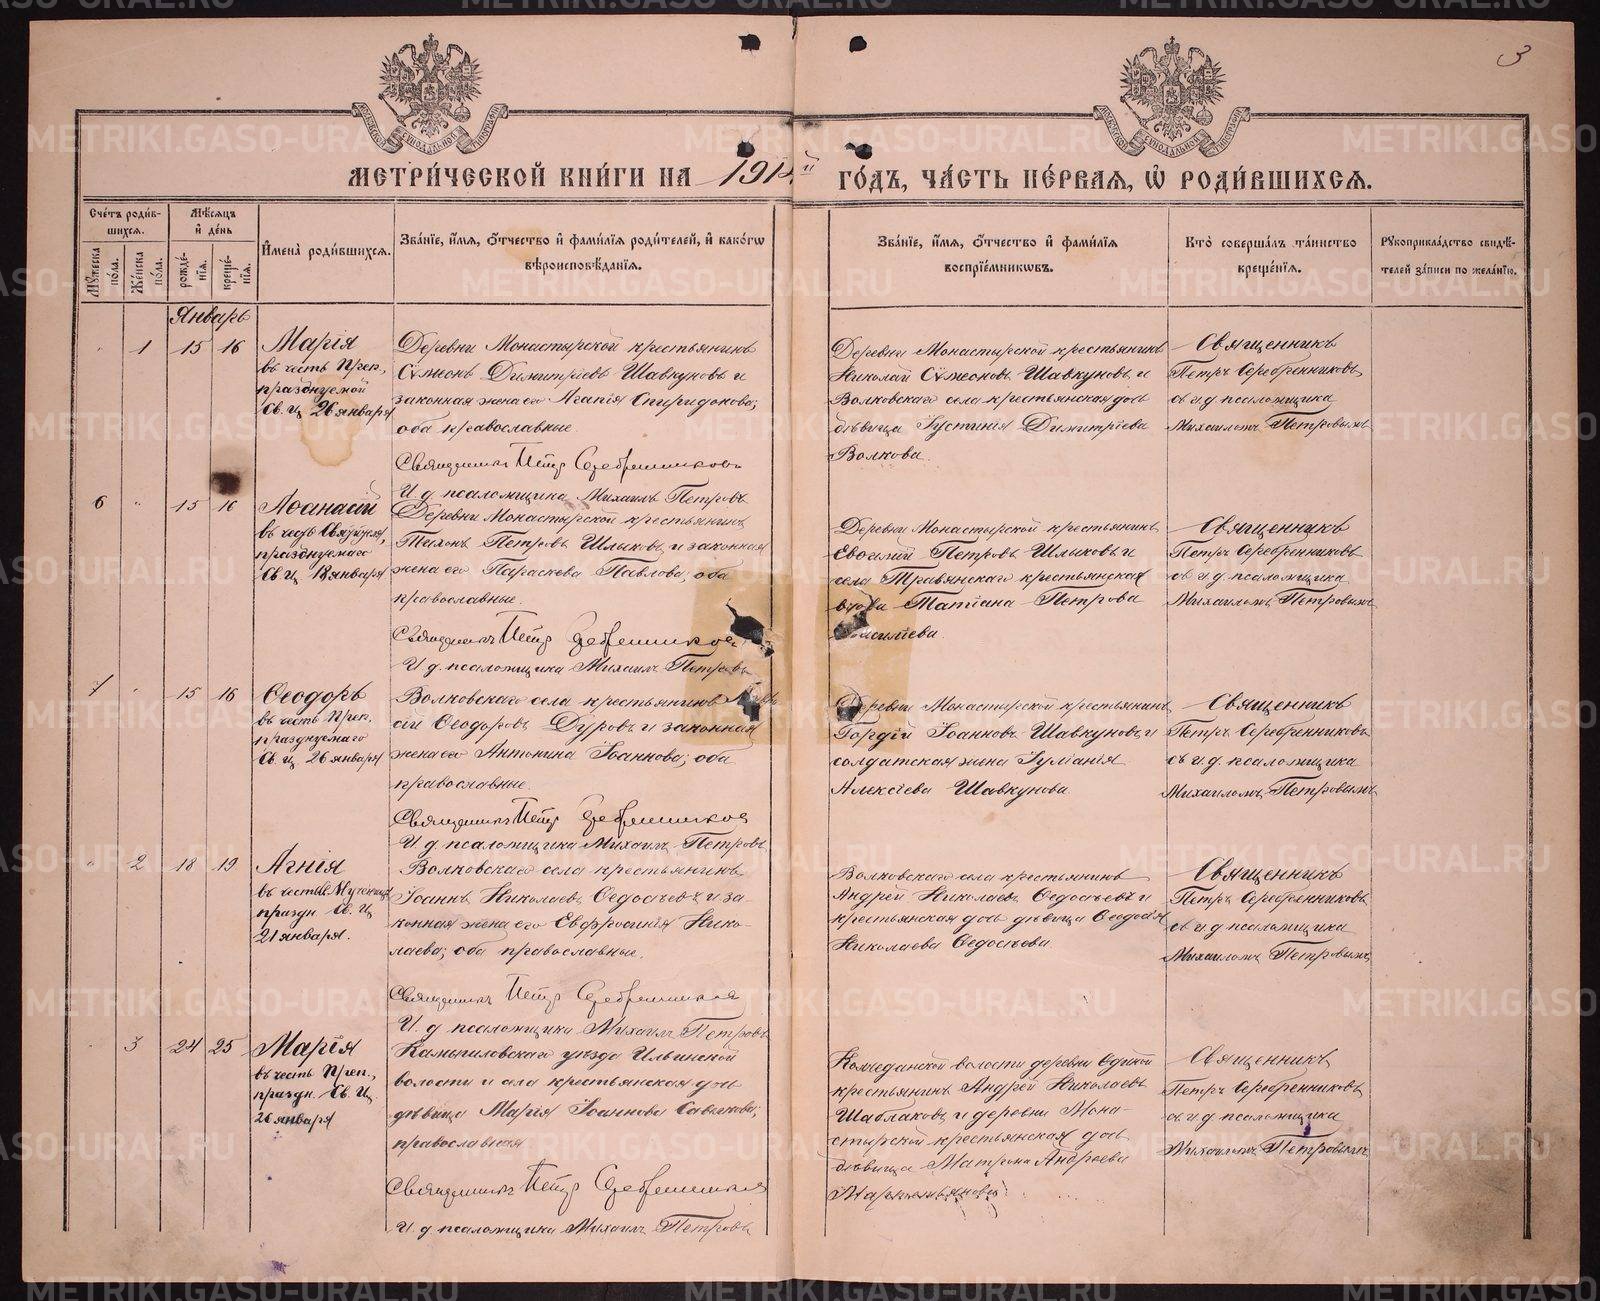 3
МЕТРИ́ЧЕСКОЙ КНИ́ГИ НА 191 й ГО́ДЪ, ЧА́СТЬ ПЕ́РВАЯ, Ѡ РОДИ́ВШИХСЯ.
Сче́тъ роди́в-
шихся.
Мѣ́сяцъ
и҆ де́нь
Му́жеска
по́ла.
Же́нска
по́ла.
рожде́-
нїя.
креще́-
нїя.
И҆мена̀ роди́вшихся.
Зва́нїе, и҆́мя, ѻ҆́тчество и҆ фами́лїя роди́телей, и҆ како́гѡ
вѣроисповѣ́данїя.
Зва́нїе, и҆́мя, ѻ҆́тчество и҆ фами́лїя
воспрїе́мникѡвъ.
Кто̀ соверша́лъ та́инство
креще́нїя.
Рукоприкла́дство свидѣ́-
телей за́писи по жела́нїю.
Январь
1 15 16
Марія
въ честь Преп.,
празднуемой
Св. Ц. 26 января
Деревни Монастырской крестьянинъ
Сѵмеонъ Димитріевъ Шавкуновъ и
законная жена его Агапія Спиридонова;
оба православные.
Священникъ Петръ Серебренниковъ
И. д. псаломщика Михаилъ Петровъ
Деревни Монастырской крестьянинъ
Николай Сѵмеоновъ Шавкуновъ и
Волковскаго села крестьянская дочь
дѣвица Іустинія Димитріева
Волкова.
Священникъ
Петръ Серебренниковъ
съ и. д. псаломщика
Михаиломъ Петровымъ
6 15 16
Аѳанасій
празднуемаго
Св. Ц. 18 января
Деревни Монастырской крестьянинъ
Тихонъ Петровъ Шлыковъ и законная
жена его Параскева Павлова; оба
православные.
Священникъ Петръ Серебренниковъ
И. д. псаломщика Михаилъ Петровъ
Деревни Монастырской крестьянинъ
Евѳимій Петровъ Шлыковъ и
села Травянскаго крестьянская
вдова Татіана Петрова
Священникъ
Петръ Серебренниковъ
съ и. д. псаломщика
Михаиломъ Петровымъ
7 15 16
Ѳеодоръ
въ честь Преп.
празднуемаго
Св. Ц. 26 января
Волковскаго села крестьянинъ
сій Ѳеодоровъ Дуровъ и законная
жена его Антонина Іоаннова; оба
православные.
Священникъ Петръ Серебренниковъ
И. д. псаломщика Михаилъ Петровъ
Деревни Монастырской крестьянинъ
Гордій Іоанновъ Шавкуновъ и
солдатская жена Іуліанія
Алексіева Шавкунова
Священникъ
Петръ Серебренниковъ
съ и. д. псаломщика
Михаиломъ Петровымъ
2 18 19
Агнія
въ честь Мученицы
праздн. Св. Ц.
21 января.
Волковскаго села крестьянинъ
Іоаннъ Николаевъ Ѳедосѣевъ и за-
конная жена его Евфросинія Нико-
лаева; оба православные.
Священникъ Петръ Серебренниковъ
И. д. псаломщика Михаилъ Петровъ
Волковскаго села крестьянинъ
Андрей Николаевъ Ѳедосѣевъ и
крестьянская дочь дѣвица Ѳеодосія
Николаева Ѳедосѣева
Священникъ
Петръ Серебренниковъ
съ и. д. псаломщика
Михаиломъ Петровымъ
3 24 25
Марія
въ честь Преп.,
праздн. Св. Ц.
26 января
Камышловскаго уѣзда Ильинской
волости и села крестьянская дочь
дѣвица Марія Іоаннова Савинкова;
православная
Священникъ Петръ Серебренниковъ
И. д. псаломщика Михаилъ Петровъ
Колчеданской волости деревни
крестьянинъ Андрей Николаевъ
Шаблаковъ и деревни Мона-
стырской крестьянская дочь
дѣвица Матрона Андреева
Священникъ
Петръ Серебренниковъ
съ и. д. псаломщика
Михаиломъ Петровымъ
METRIKI.GASO-URAL.RU